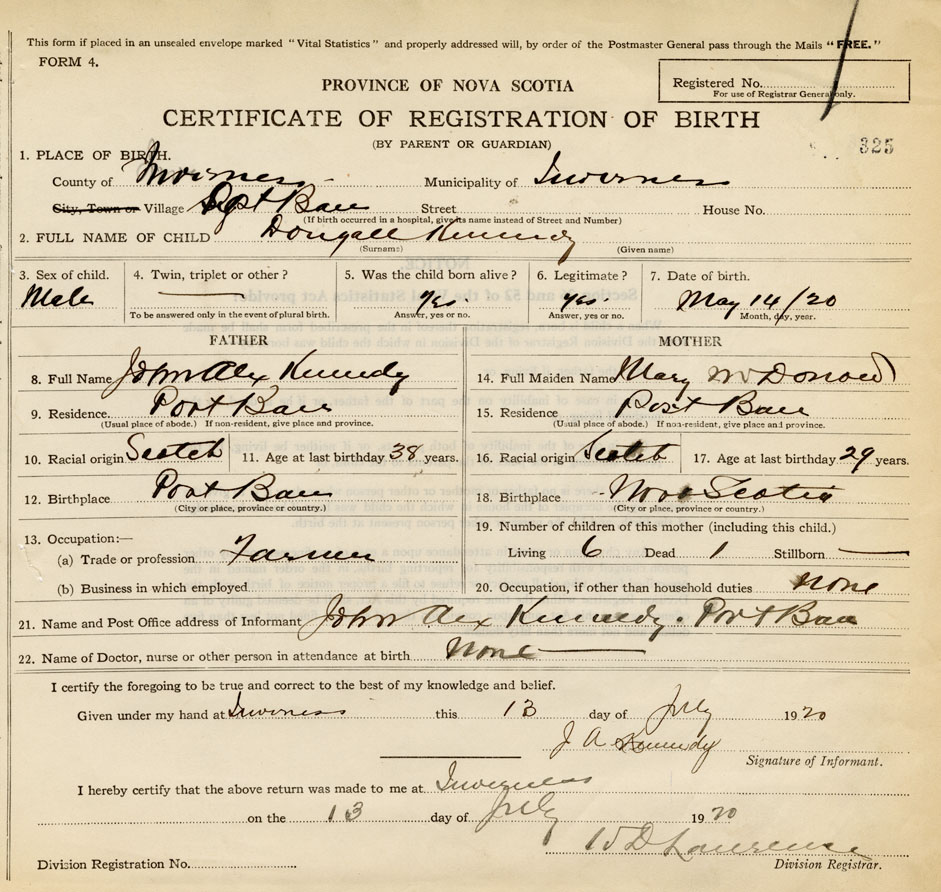 This form if placed in an unsealed envelope marked "Vital Statistics" and properly addressed will, by order of the Postmaster General pass through the Mails "FREE."
FORM 4.
Registered No.
For use of Registrar General only.
PROVINCE OF NOVA SCOTIA
CERTIFICATE OF REGISTRATION OF BIRTH
(BY PARENT OR GUARDIAN)
325
1. PLACE OF BIRTH.
County of Inverness Municipality of Inverness
City, Town or Village Port Ban Street House No.
(If birth occurred in a hospital, give its name instead of Street and Number)
2. FULL NAME OF CHILD Dougall Kennedy
(Surname) (Given name)
3. Sex of child. 4. Twin, triplet or other? 5. Was the child born alive? 6. Legitimate? 7. Date of birth.
Male Yes Yes May 14/20
To be answered only in the event of plural birth. Answer, yes or no. Answer, yes or no. Month, day, year.
FATHER MOTHER
8. Full Name John Alex Kennedy 14. Full Maiden Name Mary McDonald
9. Residence Port Ban 15. Residence Port Ban
(Usual place of abode.) If non-resident, give place and province. (Usual place of abode.) If non-resident, give place and province.
10. Racial origin Scotch 11. Age at last birthday 38 years. 16. Racial origin Scotch 17. Age at last birthday 29 years.
12. Birthplace Port Ban 18. Birthplace Nova Scotia
(City or place, province or country.) (City or place, province or country.)
13. Occupation:— 19. Number of children of this mother (including this child.)
(a) Trade or profession Farmer Living 6 Dead 1 Stillborn —
(b) Business in which employed 20. Occupation, if other than household duties none
21. Name and Post Office address of Informant John Alex Kennedy. Port Ban
22. Name of Doctor, nurse or other person in attendance at birth None
I certify the foregoing to be true and correct to the best of my knowledge and belief.
Given under my hand at Inverness this 13 day of July 1920
J A Kennedy
Signature of Informant.
I hereby certify that the above return was made to me at Inverness
on the 13 day of July 1920
W D Lawrence
Division Registration No. Division Registrar.